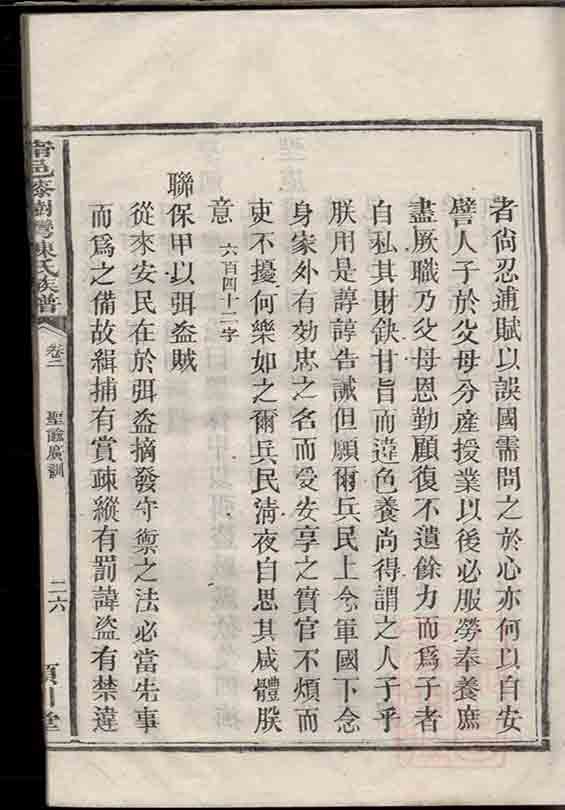 者尙忍逋賦以誤國需問之於心亦何以自安
譬人子於父母分産授業以後必服勞奉養庶
盡厥職乃父母恩勤顧復不遺餘力而爲子者
自私其財缺甘旨而違色養尚得謂之人子乎
朕用是諄諄告誡但願爾兵民上念軍國下念
身家外有効忠之名而受安享之實官不煩而
吏不擾何樂如之爾兵民淸夜自思其咸體朕
意 六百四十二字
聯保甲以弭盜賊
從來安民在於弭盜摘發守禦之法必當先事
而爲之備故緝捕有賞疎縱有罰諱盜有禁違
甯邑泰樹灣陳氏族譜
卷二
聖諭廣訓
二六
潁川堂